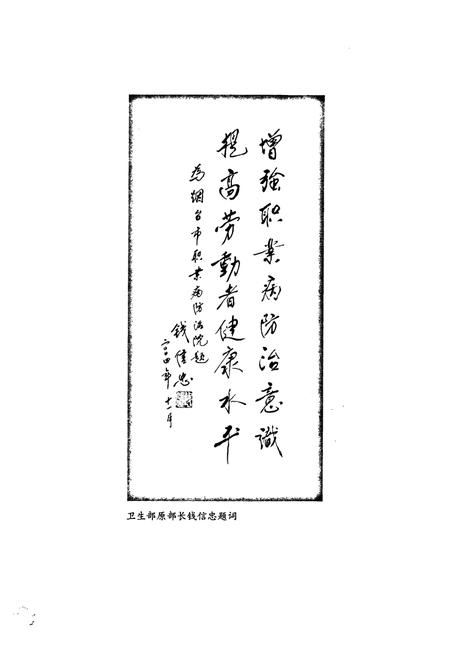 增强职业病防治意识
提高劳动者健康水平
为烟台市职业病防治院题
钱信忠
二〇〇四年十一月
卫生部原部长钱信忠题词